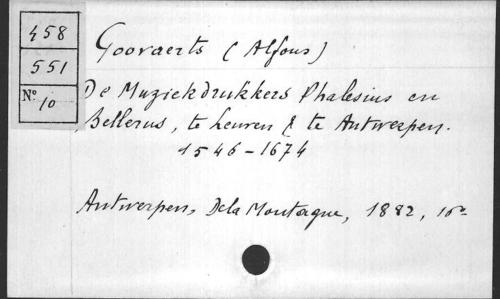 458
551
N° 10
Goovaerts (Alfons)
De Muziekdrukkers Phalesius en
Bellerus, te Leuven & te Antwerpen.
1546-1674
Antwerpen, Dela Montagne, 1882,